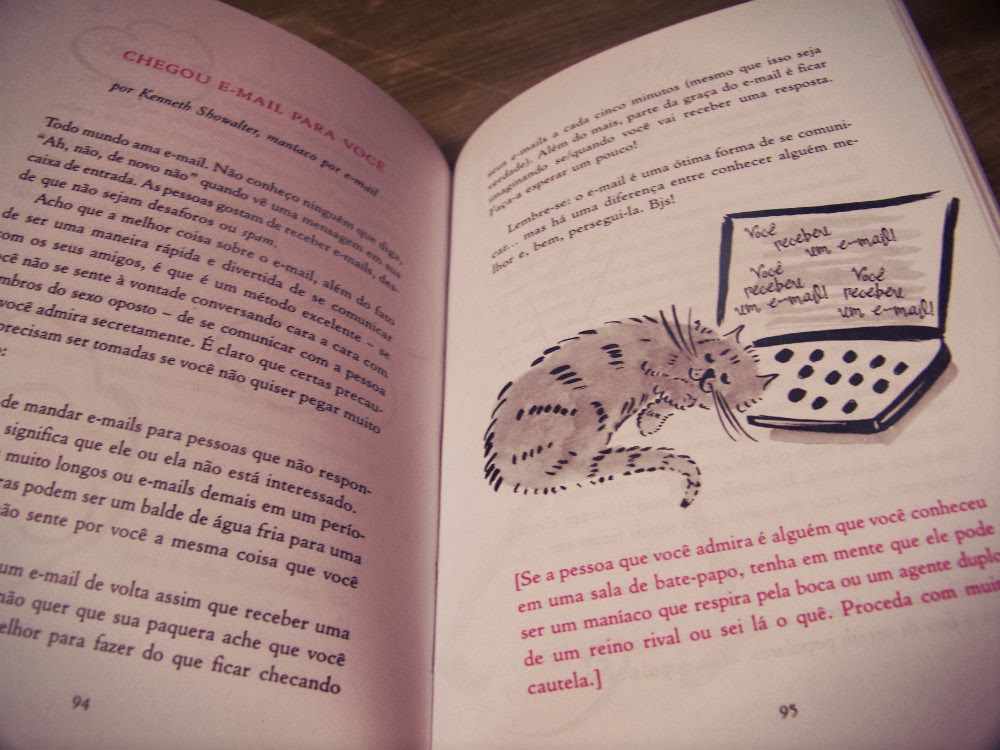 CHEGOU E-MAIL PARA VOCÊ
por Kenneth Showalter, maníaco por e-mail
Todo mundo ama e-mail. Não conheço ninguém que diga,
“Ah, não, de novo não” quando vê uma mensagem em sua
caixa de entrada. As pessoas gostam de receber e-mails, des-
de que não sejam desaforos ou spam.
Acho que a melhor coisa sobre o e-mail, além do fato
de ser uma maneira rápida e divertida de se comunicar
com os seus amigos, é que é um método excelente – se
você não se sente à vontade conversando cara a cara com
membros do sexo oposto – de se comunicar com a pessoa
você admira secretamente. É claro que certas precau-
precisam ser tomadas se você não quiser pegar muito
de mandar e-mails para pessoas que não respon-
significa que ele ou ela não está interessado.
muito longos ou e-mails demais em um perío-
podem ser um balde de água fria para uma
não sente por você a mesma coisa que você
um e-mail de volta assim que receber uma
não quer que sua paquera ache que você
melhor para fazer do que ficar checando
94
seus e-mails a cada cinco minutos (mesmo que isso seja
verdade). Além do mais, parte da graça do e-mail é ficar
imaginando se/quando você vai receber uma resposta.
Faça-a esperar um pouco!
Lembre-se: o e-mail é uma ótima forma de se comuni-
car... mas há uma diferença entre conhecer alguém me-
lhor e, bem, persegui-la. Bjs!
Você
recebeu
um e-mail!
Você
recebeu
um e-mail!
Você
recebeu
um e-mail!
[Se a pessoa que você admira é alguém que você conheceu
em uma sala de bate-papo, tenha em mente que ele pode
ser um maníaco que respira pela boca ou um agente duplo
de um reino rival ou sei lá o quê. Proceda com muita
cautela.]
95